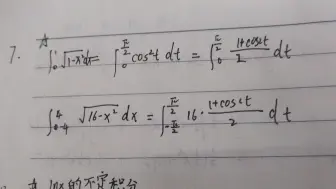 7. ∫₀¹ √(1-x²) dx = ∫₀^(π/2) cos²t dt = ∫₀^(π/2) (1+cos2t)/2 dt
∫₋₄⁴ √(16-x²) dx = ∫_(-π/2)^(π/2) 16·(1+cos2t)/2 dt
的不定积分